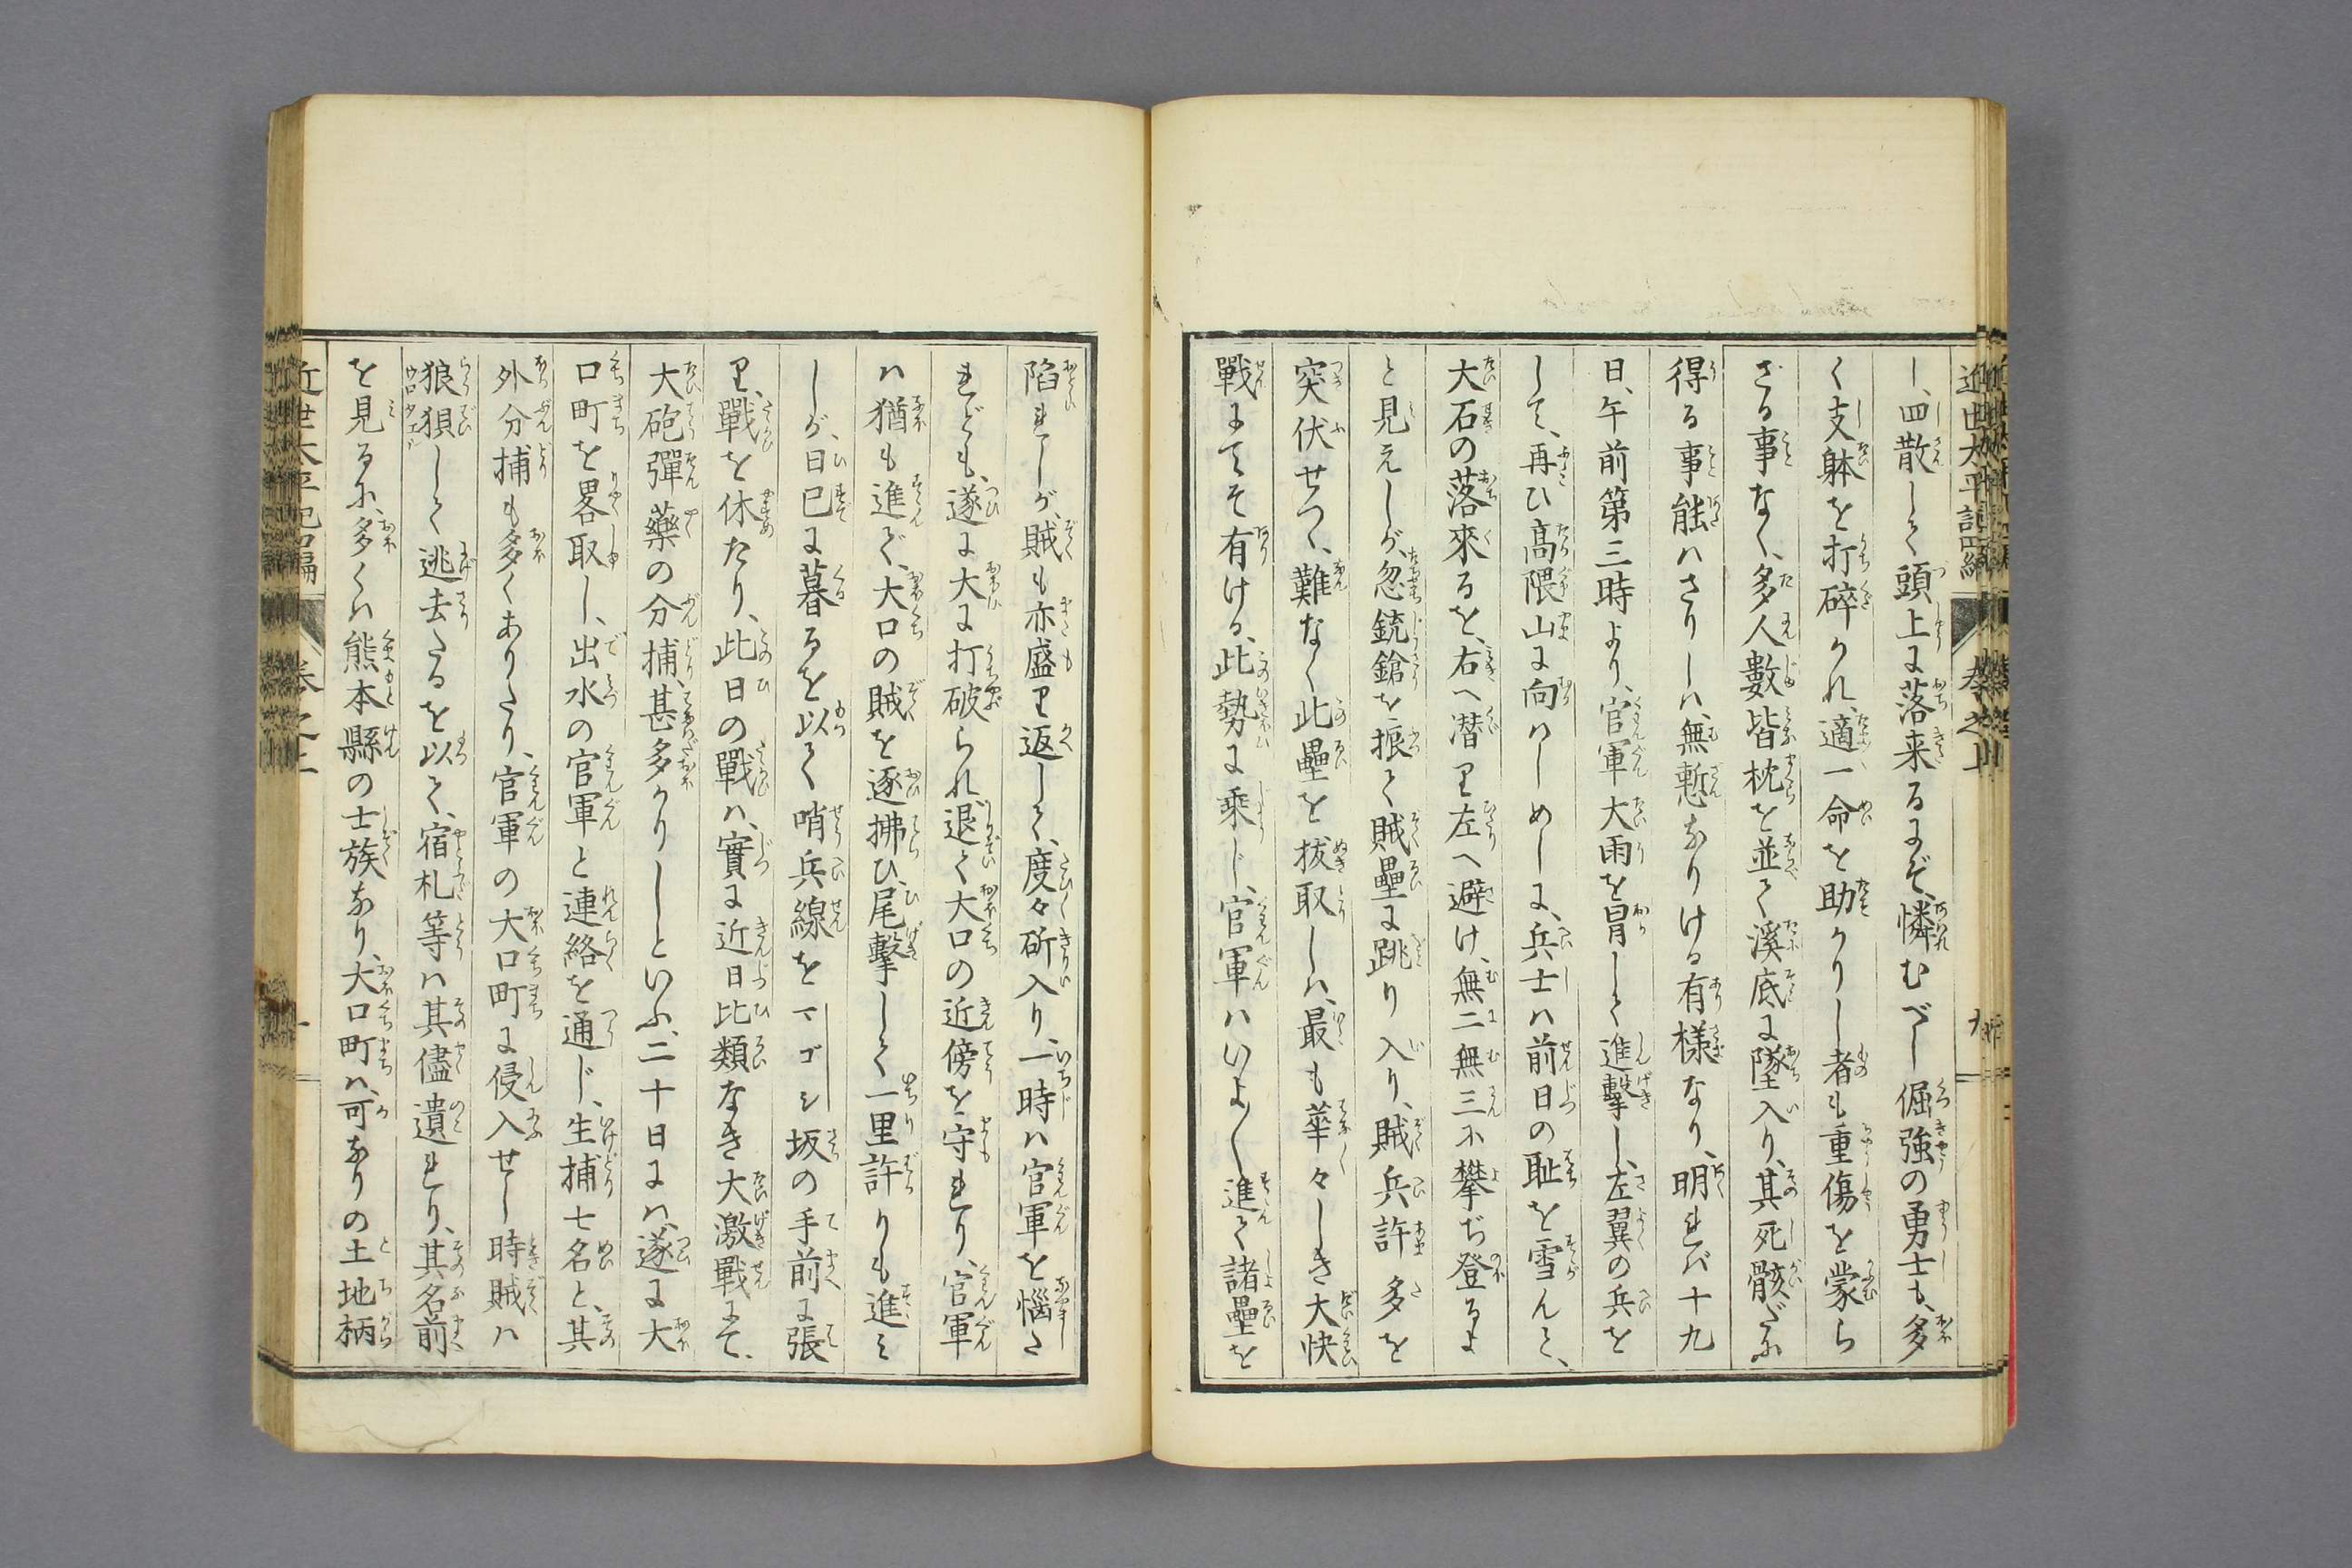 近世太平記四編 巻之上 九
し、四散して頭上に落来るにぞ、憐むべし倔強の勇士も、多
く支躰を打碎かれ、適一命を助かりし者も重傷を蒙ら
ざる事なく、多人數皆枕を並て溪底に墜入り、其死骸だに
得る事能ハさりしハ、無慙なりける有様なり、明れバ十九
日、午前第三時より、官軍大雨を冒して進撃し、左翼の兵を
して、再ひ高隈山に向ハしめしに、兵士ハ前日の耻を雪んと、
大石の落來るを、右へ潜り左へ避け、無二無三に攀ぢ登るよ
と見えしが、忽銃鎗を振て賊壘に跳り入り、賊兵許多を
突伏せつヽ、難なく此壘を拔取しハ、最も華々しき大快
戰にてそ有ける、此勢に乘し、官軍ハいよ〳〵進て諸壘を
陷れしが、賊も亦盛り返して、度々斫入り、一時ハ官軍を惱さ
れども、遂に大に打破られ、退て大口の近傍を守れり、官軍
ハ猶も進で、大口の賊を逐拂ひ、尾擊して一里許りも進ミ
しが、日已に暮るを以て哨兵線をマゴシ坂の手前に張
り、戰を休たり、此日の戰ハ、實に近日比類なき大激戰にて、
大砲彈藥の分捕、甚多かりしといふ、二十日にハ、遂に大
口町を畧取し、出水の官軍と連絡を通じ、生捕七名と、其
外分捕も多くありたり、官軍の大口町に侵入せし時賊ハ
狼狽して逃去たるを以て、宿札等ハ其儘遺れり、其名前
を見るに、多くハ熊本縣の士族なり、大口町ハ、可なりの土地柄
近世太平記四編 巻之上